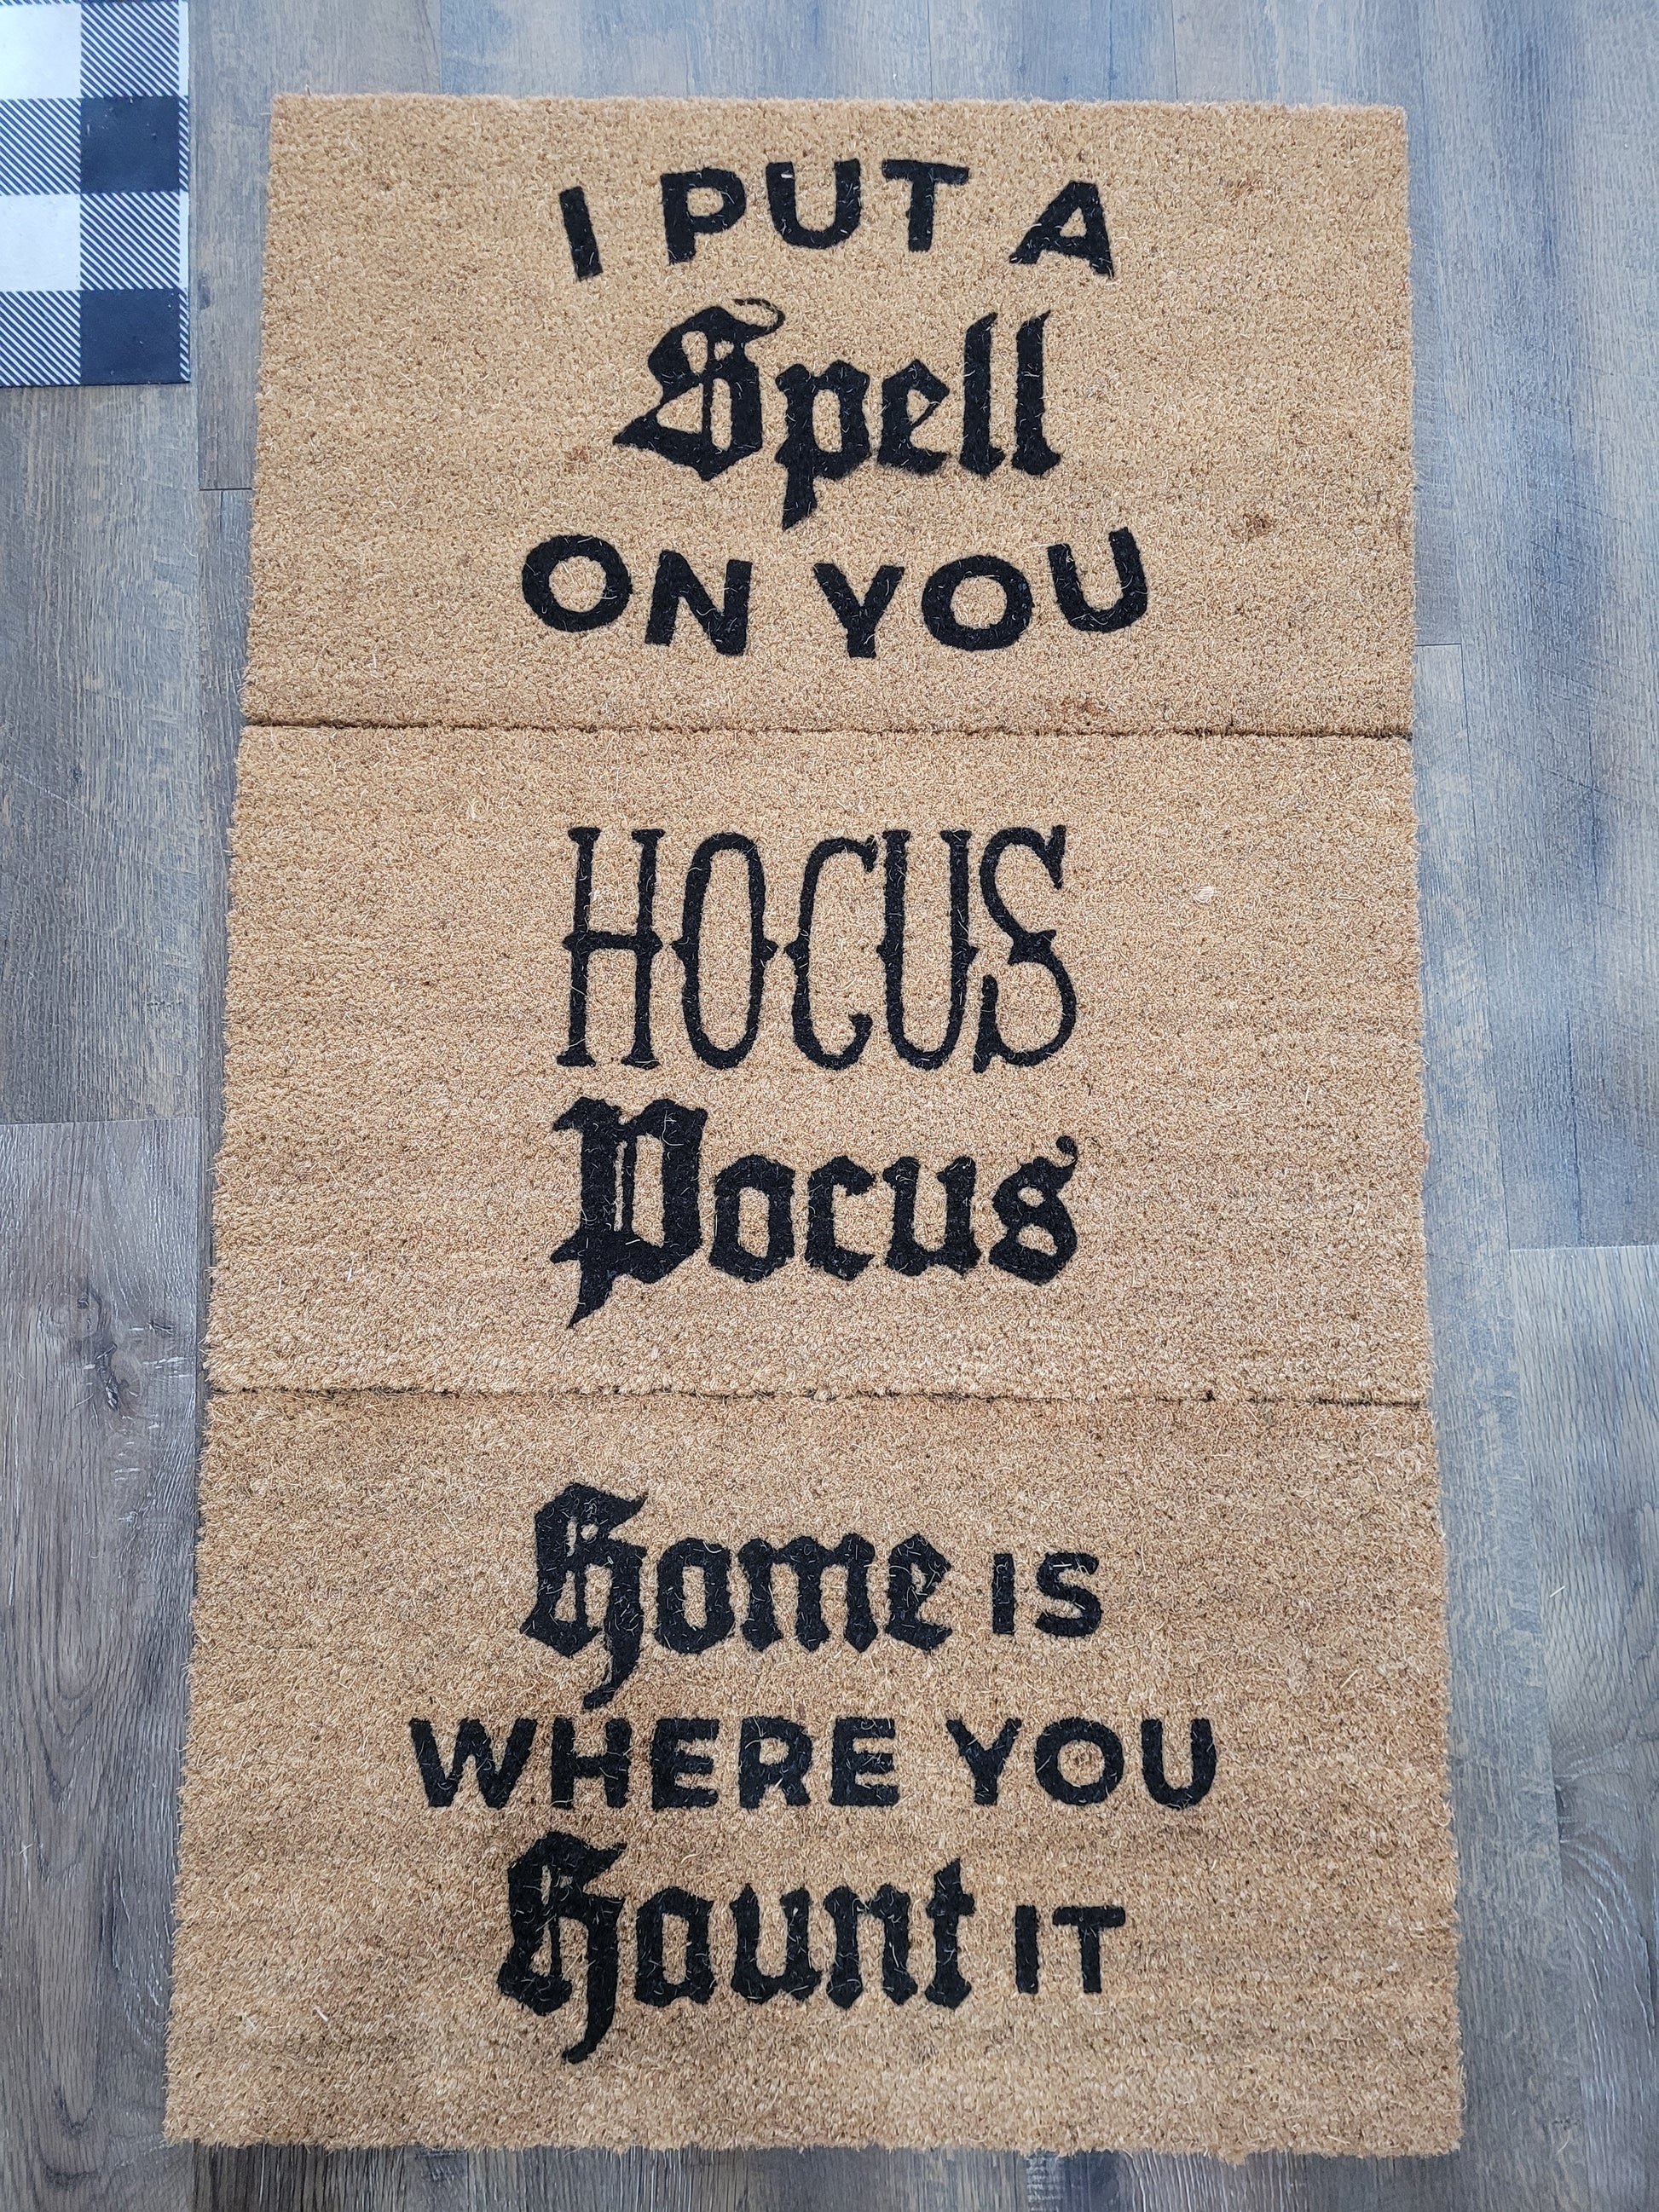 I PUT A
Spell
ON YOU
HOCUS
Pocus
Home IS
WHERE YOU
Haunt IT